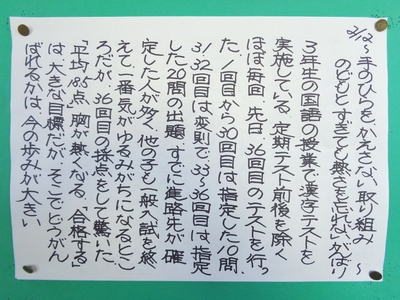 2/12～手のひらをかえさない取り組み
のどもとすぎても熱さを忘れないがんばり～
3年生の国語の授業で漢字テストを
実施している。定期テスト前後を除く
ほぼ毎回。先日、36回目のテストを行っ
た。1回目から30回目は指定した10問、
31、32回目は変則で、33～36回目は、指定
した20問の出題。すでに進路先が確
定した人が多く、他の子も一般入試を終
えて一番気がゆるみがちになるとこ
ろだが、36回目の採点をして驚いた。
「平均18.5点」胸が熱くなる。「合格する」
は、大きな目標だが、そこでどうがん
ばれるかは、今の歩みが大きい。